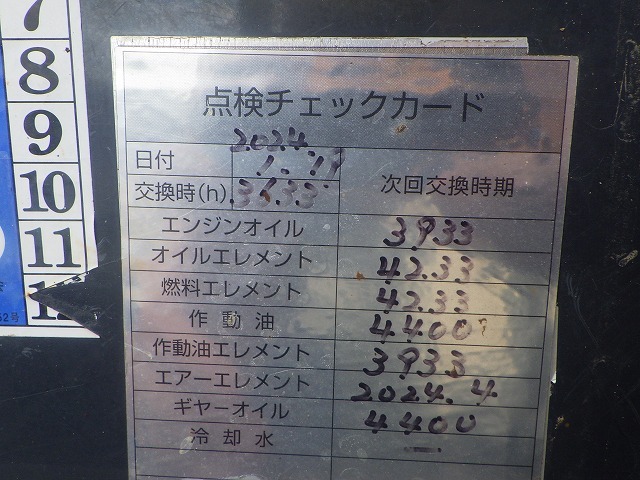 7
8
9
10
11
52号
点検チェックカード
日付 2024. 1. 19
交換時(h) 3633 次回交換時期
エンジンオイル 3933
オイルエレメント 4233
燃料エレメント 4233
作動油 4400
作動油エレメント 3933
エアーエレメント 2024.4
ギヤーオイル 4400
冷却水 ―